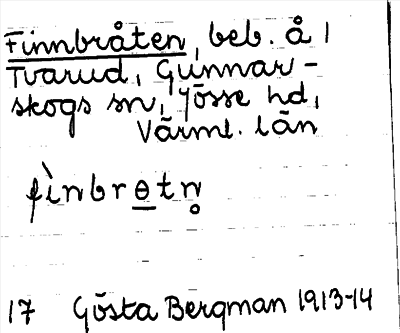 Finnbråten, beb. å 1
Tvarud, Gunnar-
skogs sn, Jösse hd,
Värml. län
fìnbrɵtn̥
17 Gösta Bergman 1913-14